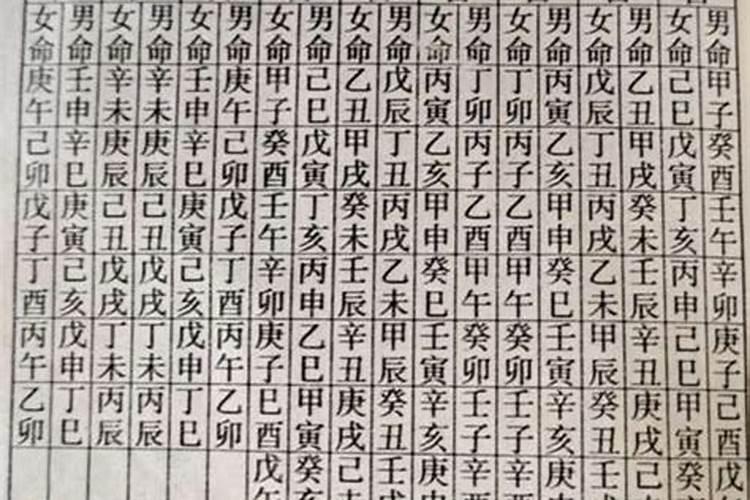 男命 甲子 癸酉 壬午 辛卯 庚子 己酉 戊
女命 己巳 戊寅 丁亥 丙申 己巳 甲寅 癸
男命 乙丑 甲戌 癸未 壬辰 辛丑 庚戌 己
女命 戊辰 丁丑 丙戌 乙未 甲辰 癸丑 壬
男命 丙寅 乙亥 甲申 癸巳 壬寅 辛亥 庚
女命 丁卯 丙子 乙酉 甲午 癸卯 壬子 辛
男命 丁卯 丙子 乙酉 甲午 癸卯 壬子 辛
女命 丙寅 乙亥 甲申 癸巳 壬寅 辛亥 庚
男命 戊辰 丁丑 丙戌 乙未 甲辰 癸丑 壬
女命 乙丑 甲戌 癸未 壬辰 辛丑 庚戌 己
男命 己巳 戊寅 丁亥 丙申 乙巳 甲寅 癸
女命 甲子 癸酉 壬午 辛卯 庚子 巳酉 戊
男命 庚午 己卯 戊子 丁酉 丙午 乙卯
女命 壬申 辛巳 庚寅 己亥 戊申 丁巳
男命 辛未 庚辰 己丑 戊戌 丁未 丙辰
女命 辛未 庚辰 己丑 戊戌 丁未 丙辰
男命 壬申 辛巳 庚寅 己亥 戊申 丁巳
女命 庚午 己卯 戊子 丁酉 丙午 乙卯